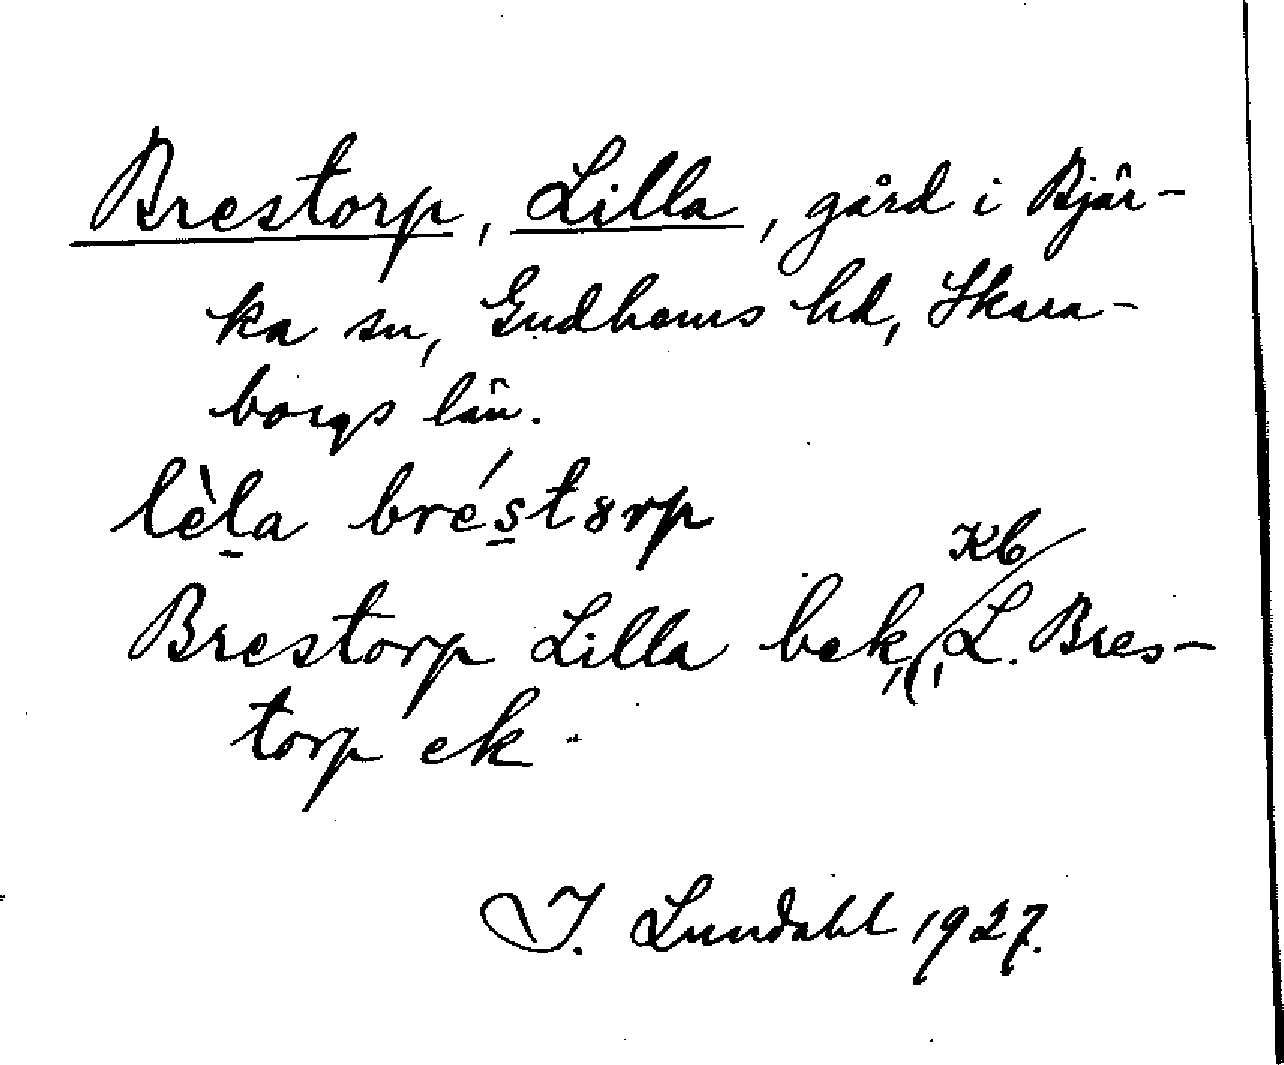 Brestorp, Lilla, gård i Bjär-
ka sn, Gudhems hd, Skara-
borgs län.
lèl̠a brés̠tɤrp
Brestorp Lilla bek, Kb, L. Bres-
torp ek.
I. Lundahl 1927.